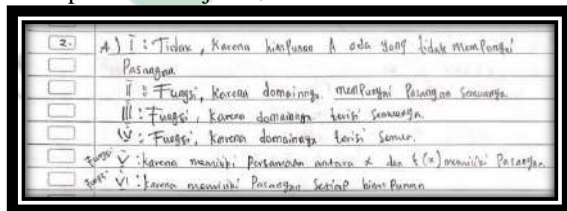 2. A) I : Tidak, karena himpunan A ada yang tidak mempunyai
Pasangan
II : Fungsi, karena domainnya mempunyai Pasangan semuanya.
III : Fungsi, karena domainnya terisi semuanya.
IV : Fungsi, karena domainnya terisi semua.
Fungsi V : karena memiliki Persamaan antara x dan f(x) memiliki Pasangan
Fungsi VI : karena memiliki Pasangan setiap himpunan